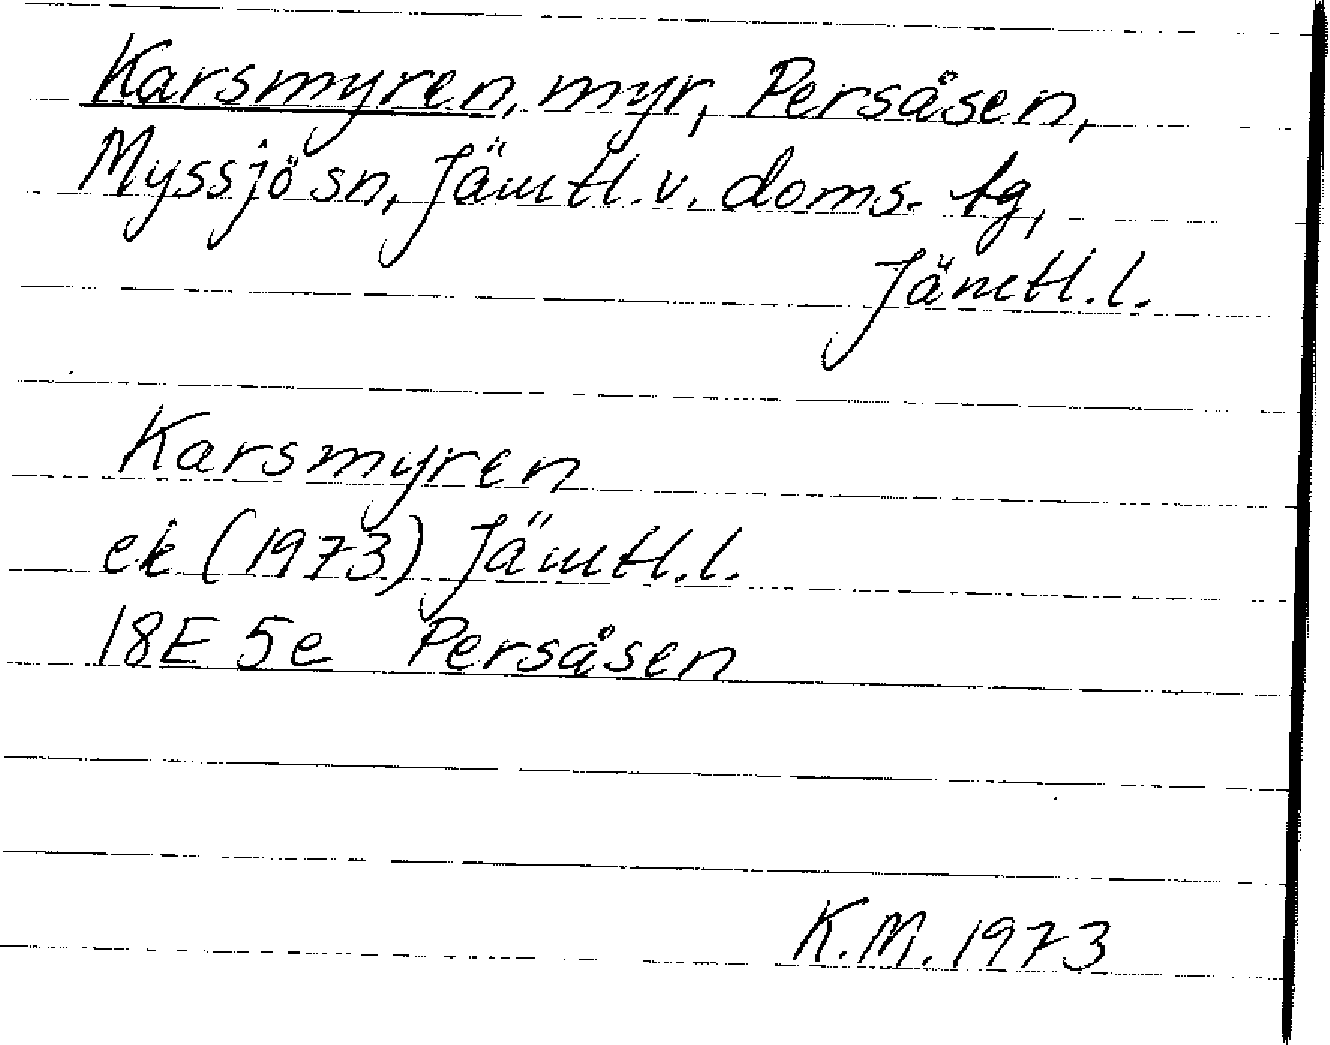 Karsmyren, myr, Persåsen,
Myssjö sn, Jämtl. v. doms. tg,
Jämtl. l.
Karsmyren
ek (1973) Jämtl. l.
18E 5e Persåsen
K.M. 1973